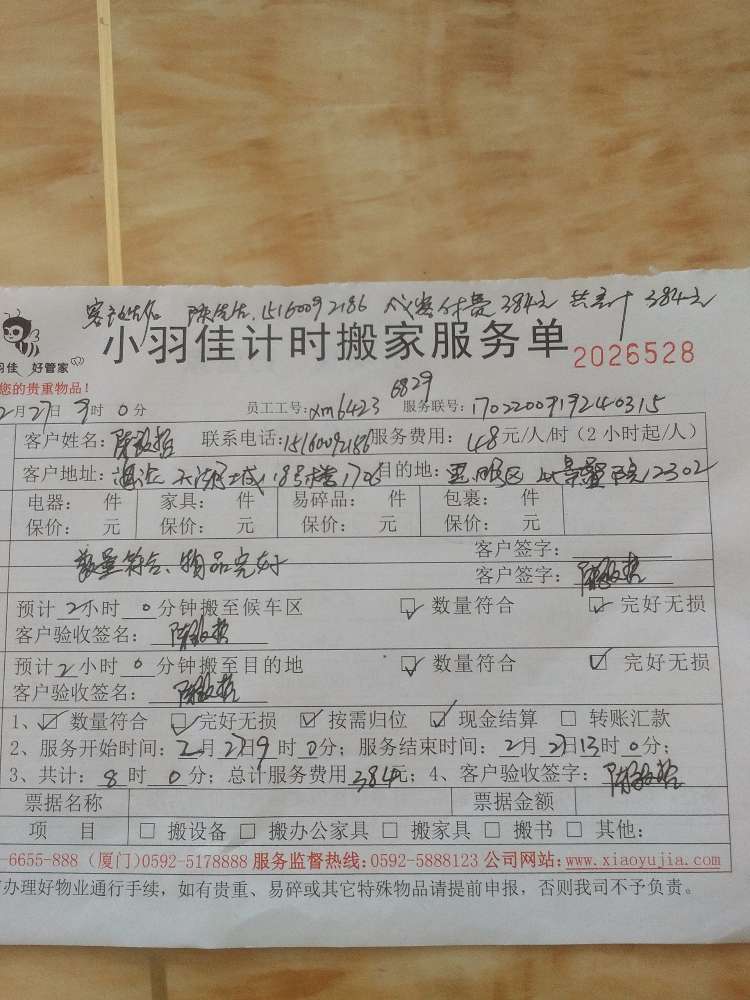 客户姓名 陈先生.15160092186 代客付费384元 共计384元
小羽佳计时搬家服务单 2026528
羽佳 好管家
您的贵重物品!
6829
2月27日9时0分 员工工号:xm6423 服务联号:170220091924-0315
客户姓名: 联系电话:15160092186 服务费用:48元/人/时(2小时起/人)
客户地址: 18号楼1706 目的地: 12302
电器: 件 家具: 件 易碎品: 件 包裹: 件
保价: 元 保价: 元 保价: 元 保价: 元
客户签字:
数量符合、物品完好
客户签字:
预计2小时0分钟搬至候车区 ☑ 数量符合 ☑ 完好无损
客户验收签名:
预计2小时0分钟搬至目的地 ☑ 数量符合 ☑ 完好无损
客户验收签名:
1、☑ 数量符合 ☑ 完好无损 ☑ 按需归位 ☑ 现金结算 □ 转账汇款
2、服务开始时间:2月27日9时0分;服务结束时间:2月27日13时0分;
3、共计:8时0分;总计服务费用384元;4、客户验收签字:
票据名称 票据金额
项 目 □ 搬设备 □ 搬办公家具 □ 搬家具 □ 搬书 □ 其他:
-6655-888(厦门)0592-5178888 服务监督热线:0592-5888123 公司网站:www.xiaoyujia.com
办理好物业通行手续,如有贵重、易碎或其它特殊物品请提前申报,否则我司不予负责。